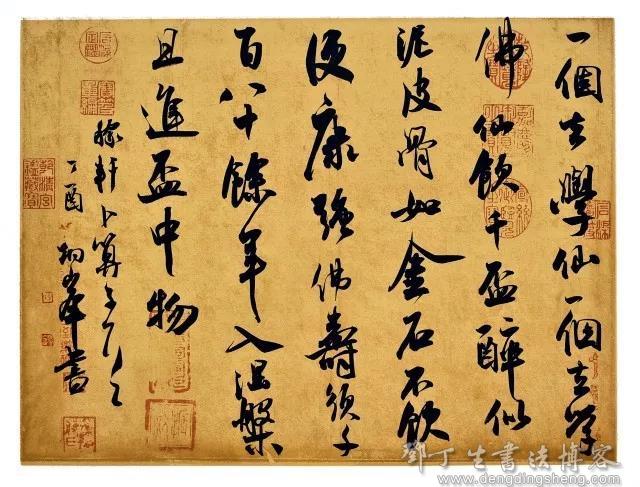 一個去學仙一個去学
佛仙飲千盃醉似
泥皮骨如金石不飲
便康強佛壽須千
百八十餘年入涅槃
且進盃中物
稼軒卜算子
丁酉 書
鄧丁生書法博客
www.dengdingsheng.com